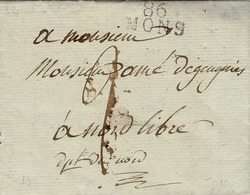 86
MONS
a monsieur
Monsieur amé
à nord libre
dpt du nord